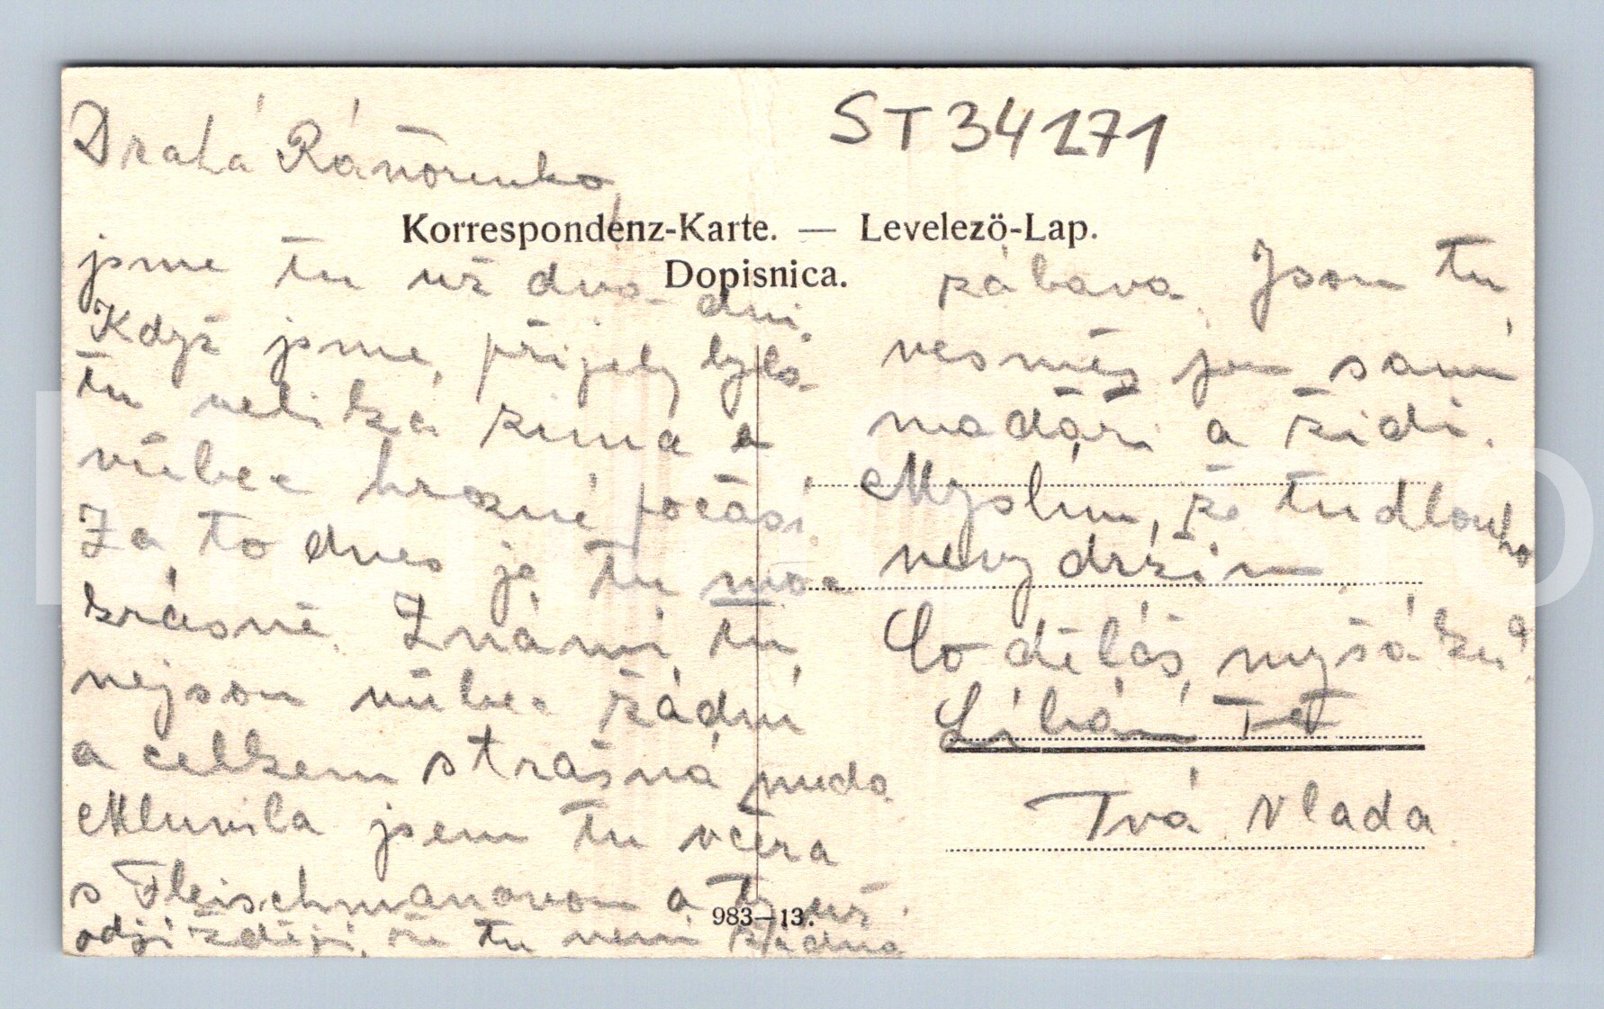 ST 34171
Korrespondenz-Karte. — Levelezö-Lap.
Dopisnica.
Drahá
jsme tu už dva
dni.
Když jsme přijely byla
tu veliká zima a
vůbec hrozné počasí.
Za to dnes je tu moc
krásně. Známí tu
nejsou vůbec žádní
a celkem strašná nuda
Mluvila jsem tu včera
s Fleischmanovou a ty už
odjíždějí, že tu není žádná
zábava. Jsou tu
vesměs jen samí
maďaři a židi.
Myslím, že tu dlouho
nevydržím
Co děláš, myšáku?
Líbám Tě
Tvá Vlada
983—13.